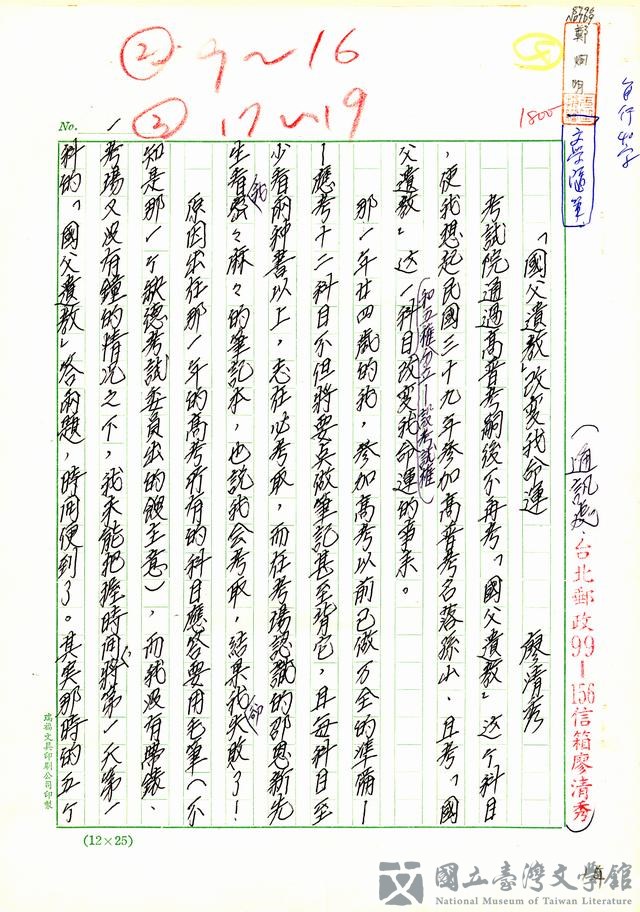 8796
No769
鄭烱明
自行出
文學隨筆
1800
② 9~16
③ 17~19
No. 1
(通訊處:台北郵政99-156信箱廖清秀)
「國父遺教」改變我命運
廖清秀
考試院通過高普考嗣後不再考「國父遺教」這个科目
,使我想起民國三十九年參加高普考名落孫山,且考「國
父遺教」這一科目改變我命運的事來。
和五權分立-談考試權
那一年廿四歲的我,參加高考以前已做万全的準備-
-應考十二科目不但將要點做筆記甚至背它,且每科目至
少看兩种書以上,志在必考取,而在考場認識的邵恩新先
生看我密々麻々的筆記本,也說我会考取,結果我却失敗了!
原因出在那一年的高考所有的科目應答要用毛筆(不
知是那一个缺德考試委員出的餿主意),而我没有帶錶、
考場又没有鐘的情況之下,我未能把握時間,將第一天第一
科的「國父遺教」答兩題,時間便到了。其实那時的五个
瑞福文具印刷公司印製
(12×25)
國立臺灣文學館
National Museum of Taiwan Literature